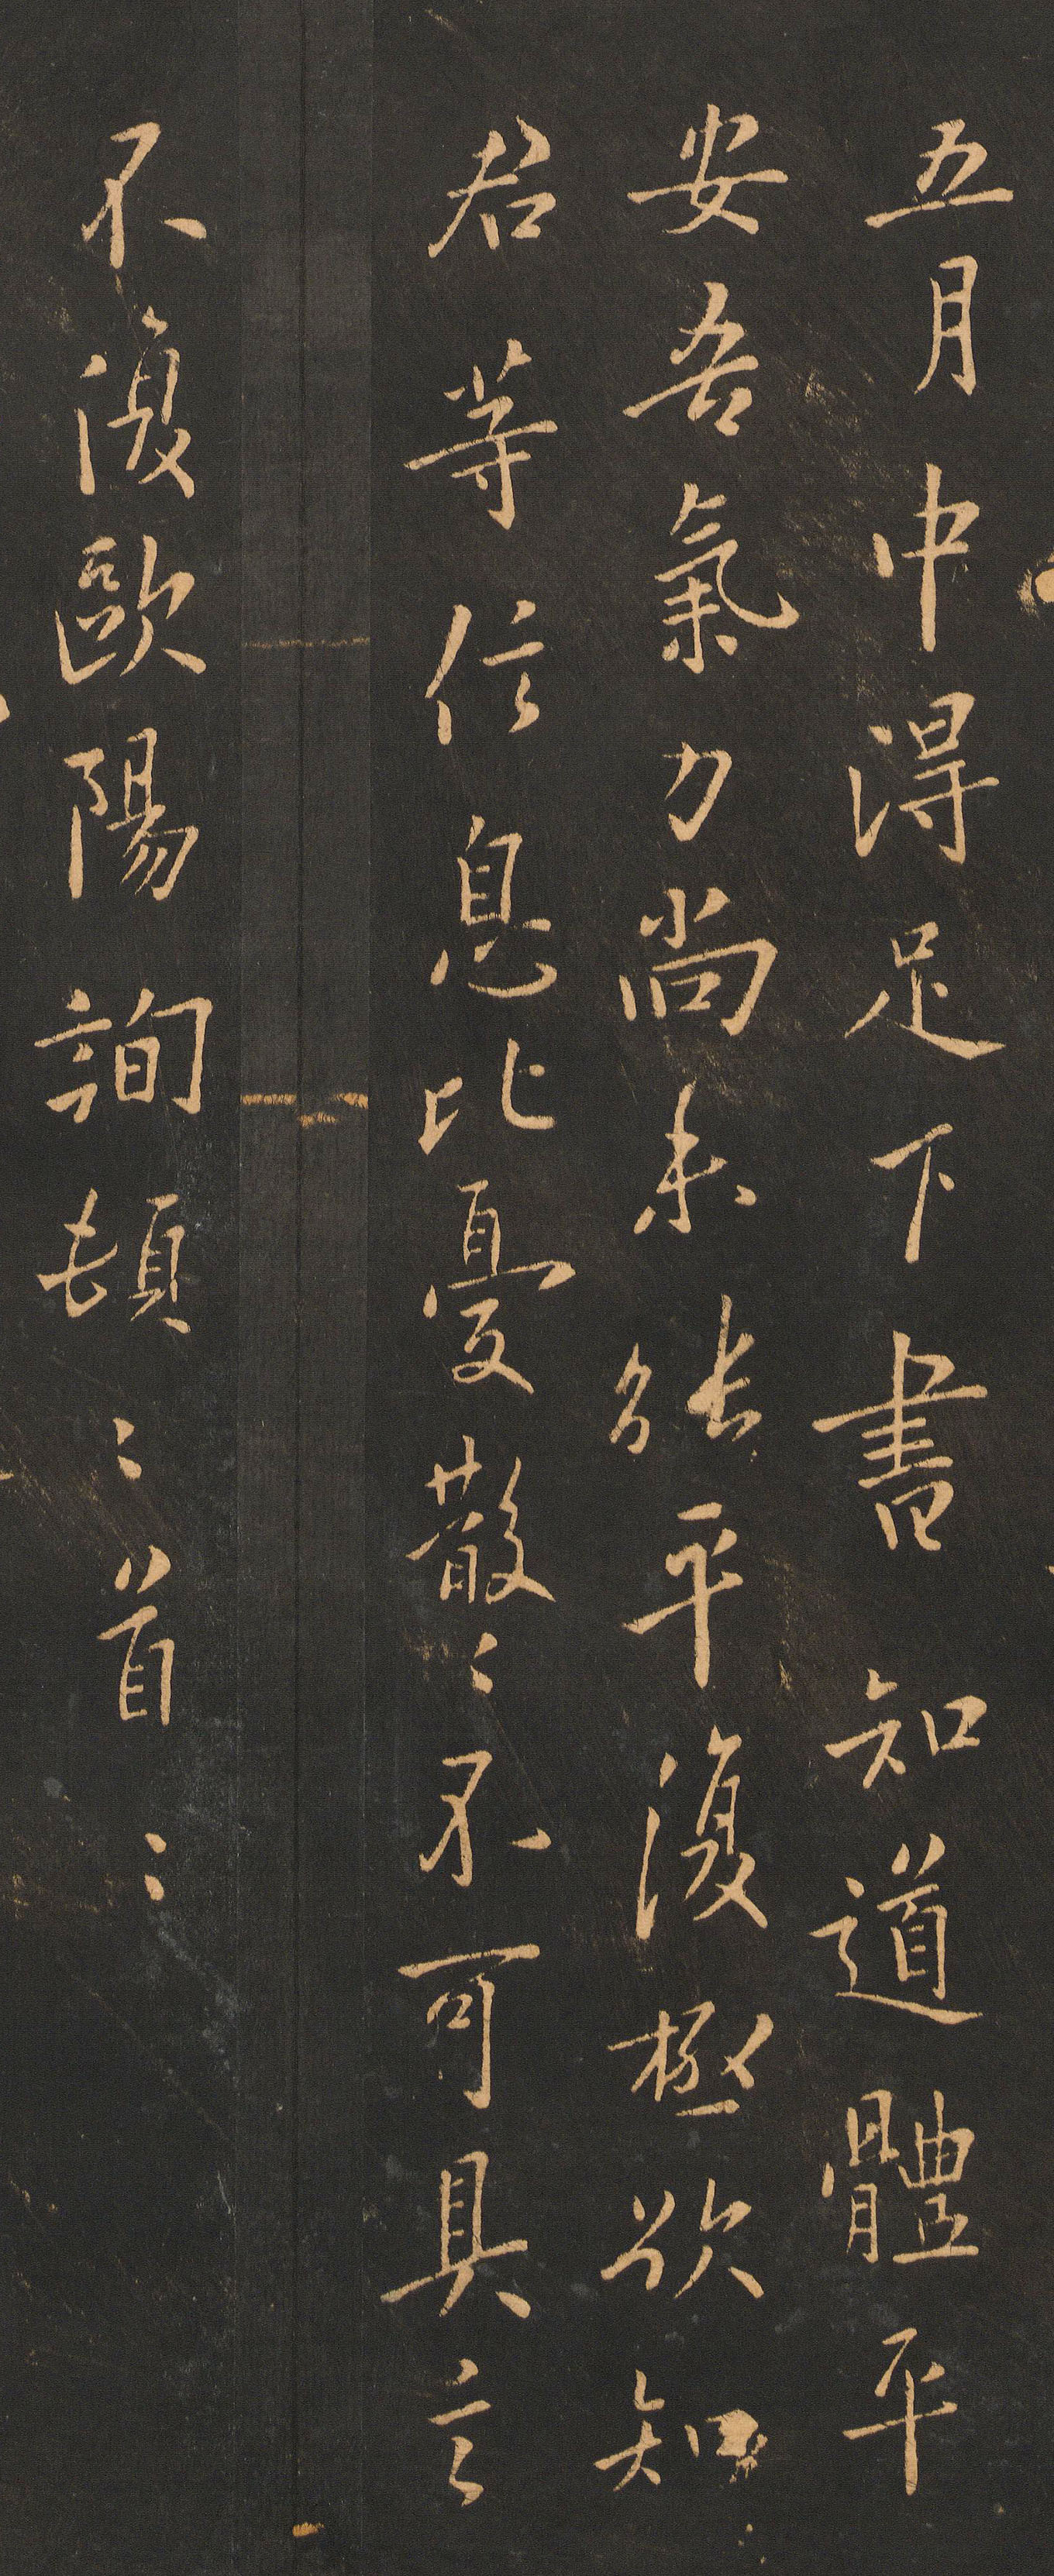 五月中得足下書知道體平
安吾氣力尚未能平復極欲知
君等信息比憂散〻不可具言
不復歐陽詢頓〻首〻